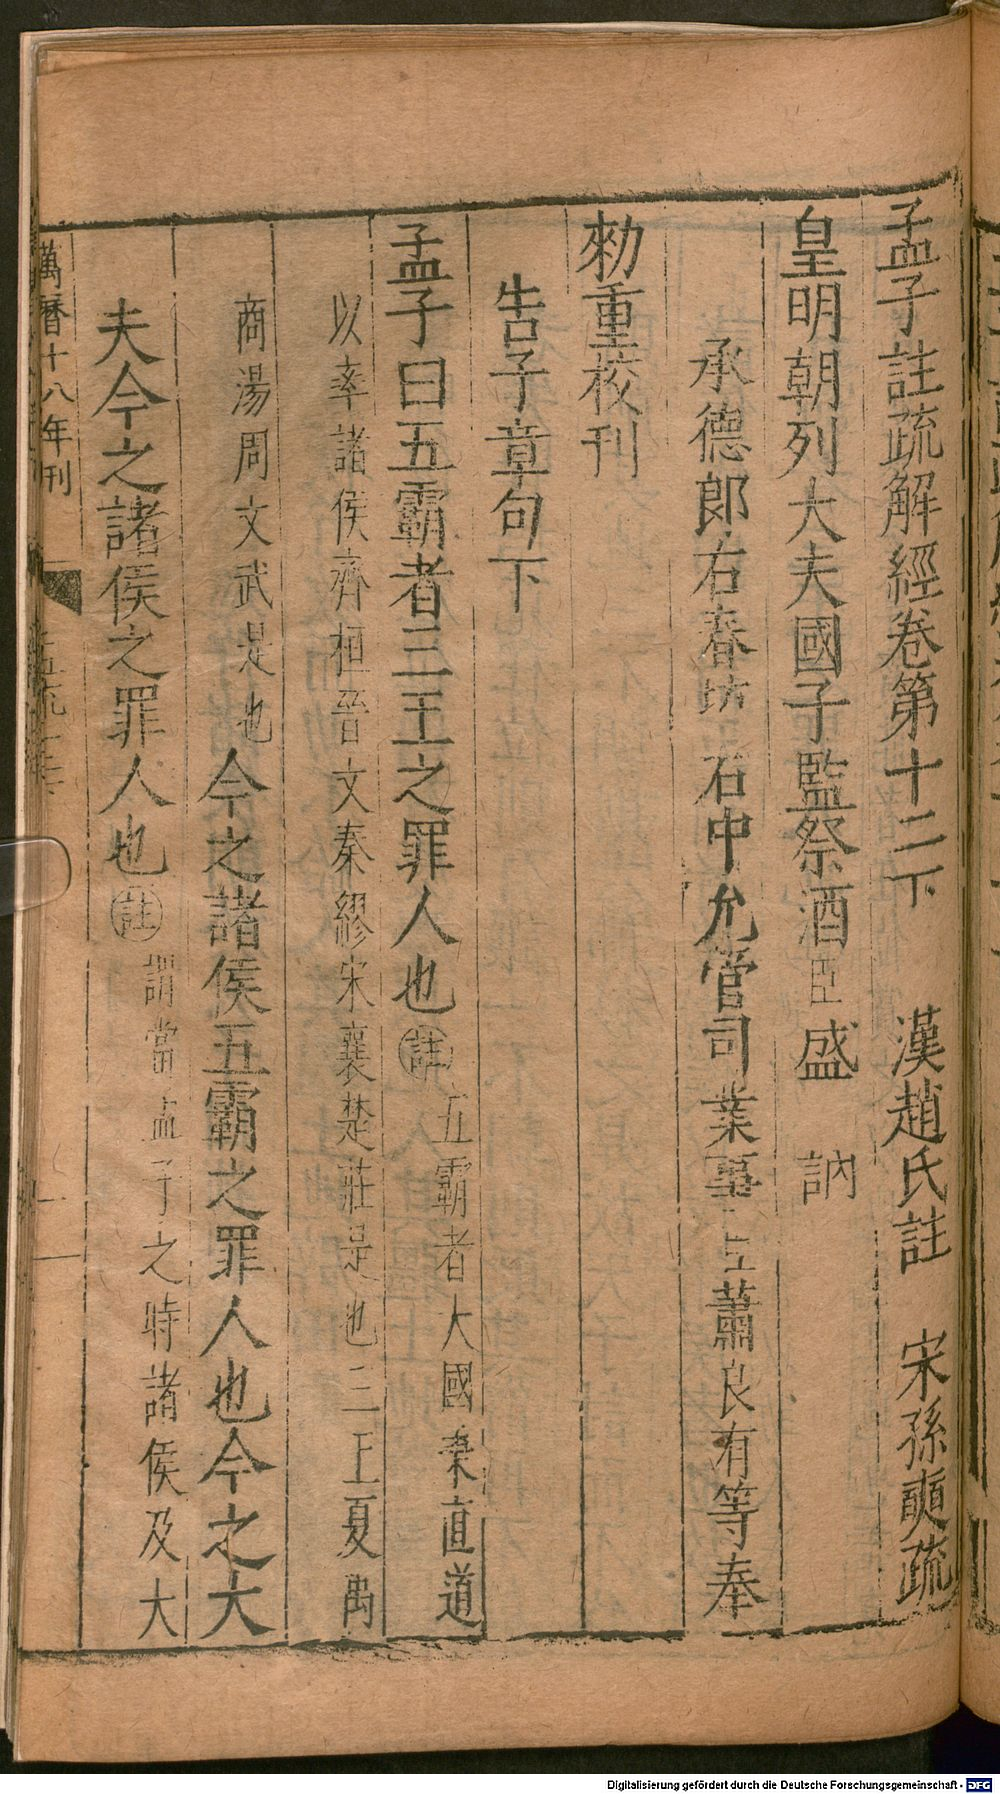 孟子註疏解經卷第十二下　漢趙氏註　宋孫奭疏
皇明朝列大夫國子監祭酒臣盛　訥
承德郎右春坊右中允管司業事臣蕭良有等奉
勑重校刊
告子章句下
孟子曰五霸者三王之罪人也註五霸者大國秉直道
以率諸侯齊桓晉文秦繆宋襄楚莊是也三王夏禹
商湯周文武是也今之諸侯五霸之罪人也今之大
夫今之諸侯之罪人也註謂當孟子之時諸侯及大
萬曆十八年刊
Digitalisierung gefördert durch die Deutsche Forschungsgemeinschaft - DFG